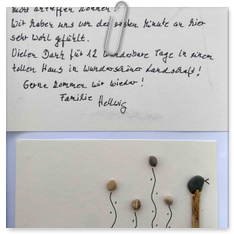 nicht antreffen können.
Wir haben uns von der ersten Minute an hier
sehr wohl gefühlt.
Vielen Dank für 12 wunderbare Tage in einem
tollen Haus in wunderschöner Landschaft!
Gerne kommen wir wieder!
Familie Hellwig